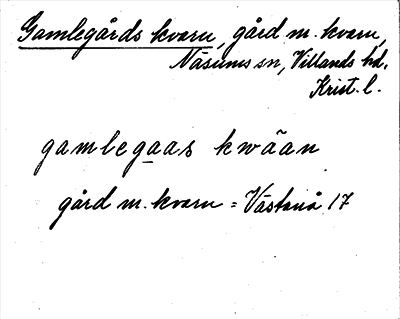 Gamlegårds kvarn, gård m. kvarn,
Näsums sn, Villands hd.
Krist. l.
gamlegaas kwãan
gård m. kvarn = Västanå 17